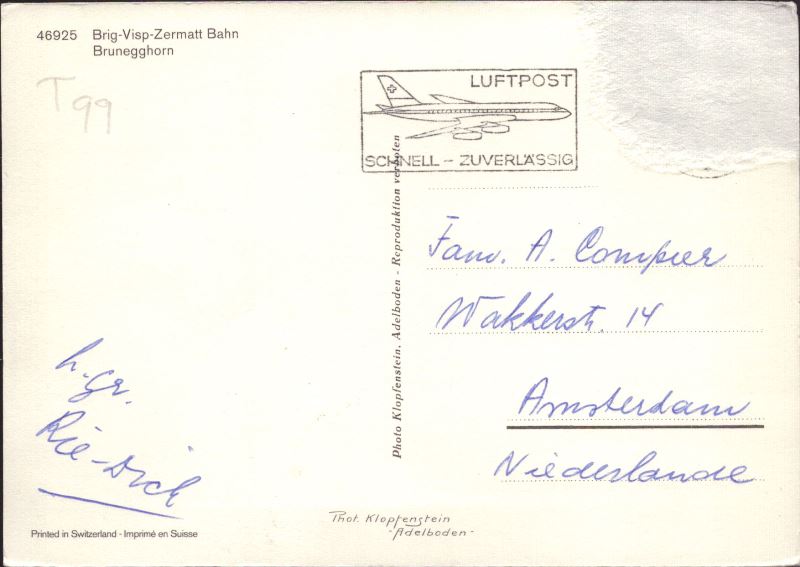 46925 Brig-Visp-Zermatt Bahn
Brunegghorn
T99
LUFTPOST
SCHNELL - ZUVERLÄSSIG
Photo Klopfenstein, Adelboden - Reproduktion verboten
Fam. A. Compier
Wakkerstr. 14
Amsterdam
Niederlande
h. gr.
Rie-Dick
Phot. Klopfenstein
-Adelboden-
Printed in Switzerland - Imprimé en Suisse